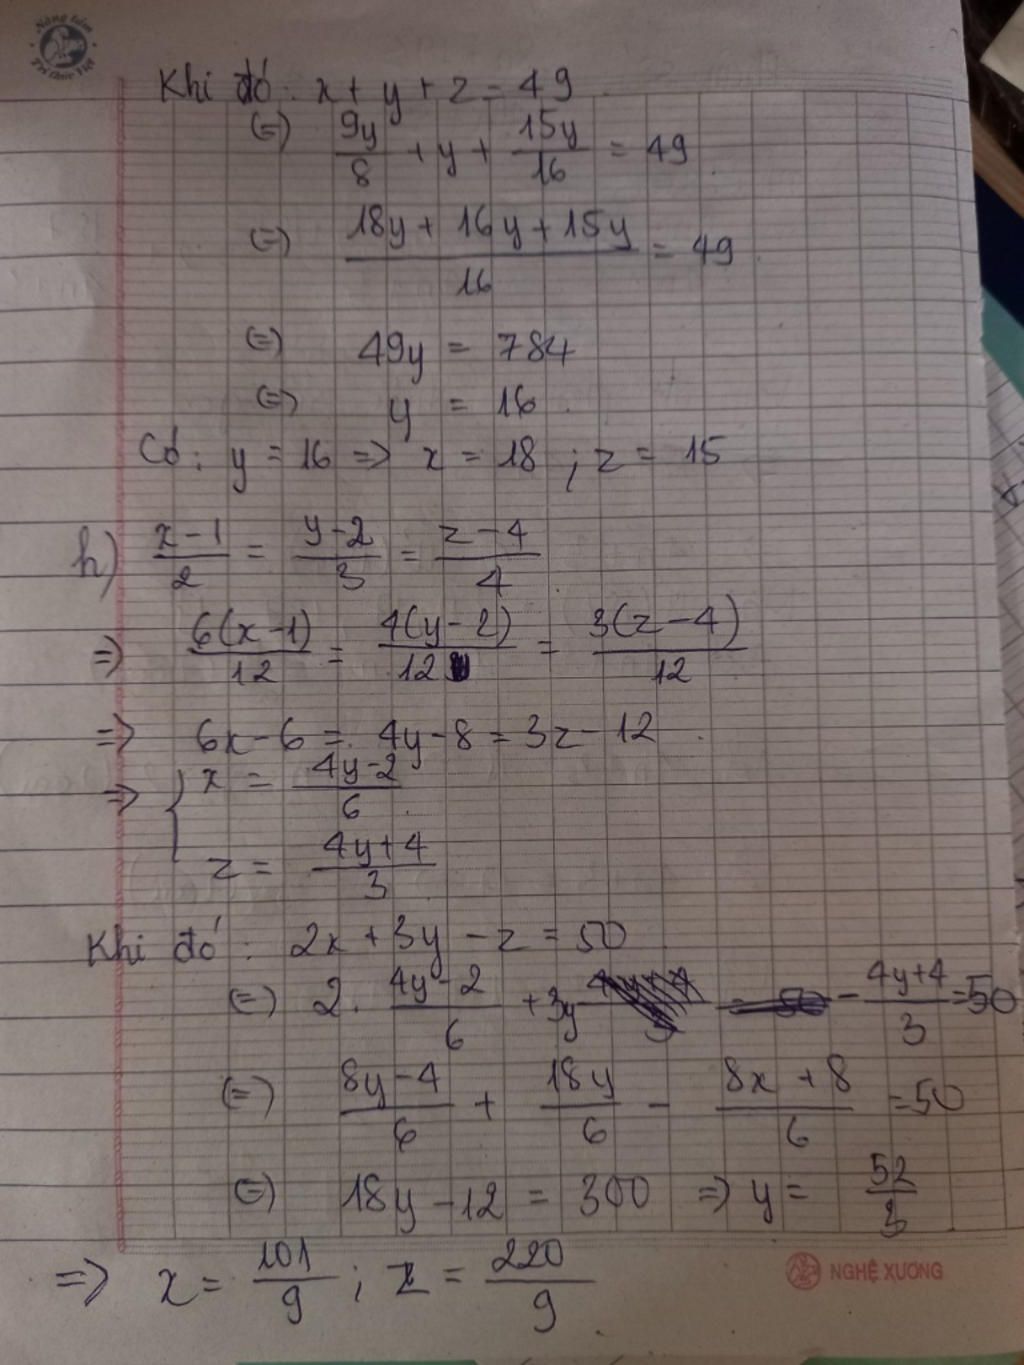 Nâng tầm
Tri thức Việt
Khi đó: x + y + z = 49
(=) 9y/8 + y + 15y/16 = 49
(=) (18y + 16y + 15y)/16 = 49
(=) 49y = 784
(=) y = 16
Có: y = 16 => x = 18 ; z = 15
h) (x-1)/2 = (y-2)/3 = (z-4)/4
=> 6(x-1)/12 = 4(y-2)/12 = 3(z-4)/12
=> 6x-6 = 4y-8 = 3z-12
=> { x = (4y-2)/6
z = (4y+4)/3
Khi đó: 2x + 3y - z = 50
(=) 2. (4y-2)/6 + 3y - (4y+4)/3 = 50
(=) (8y-4)/6 + 18y/6 - (8x+8)/6 = 50
(=) 18y - 12 = 300 => y = 52/3
=> x = 101/9 ; z = 220/9
NGHỆ XƯƠNG